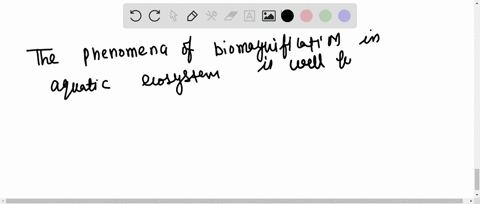 The phenomena of biomagnification in
aquatic ecosystem is well